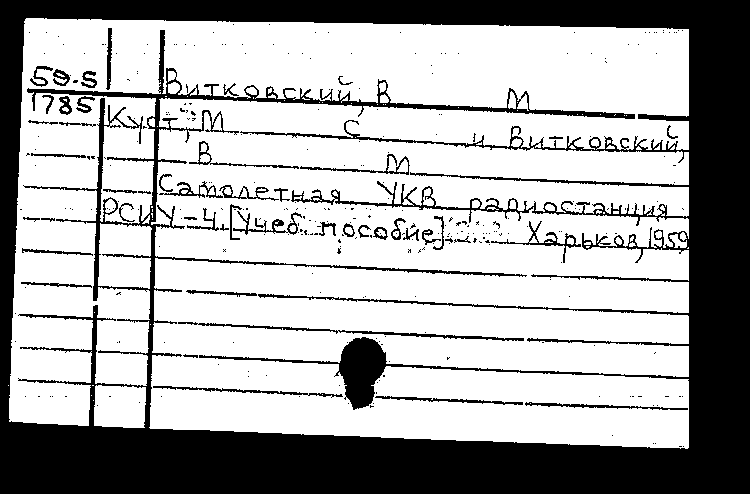 59-5
1785
Витковский, В М
Куст, М С и Витковский,
В М
Самолетная УКВ радиостанция
РСИУ-4. [Учеб. пособие]. Харьков, 1959